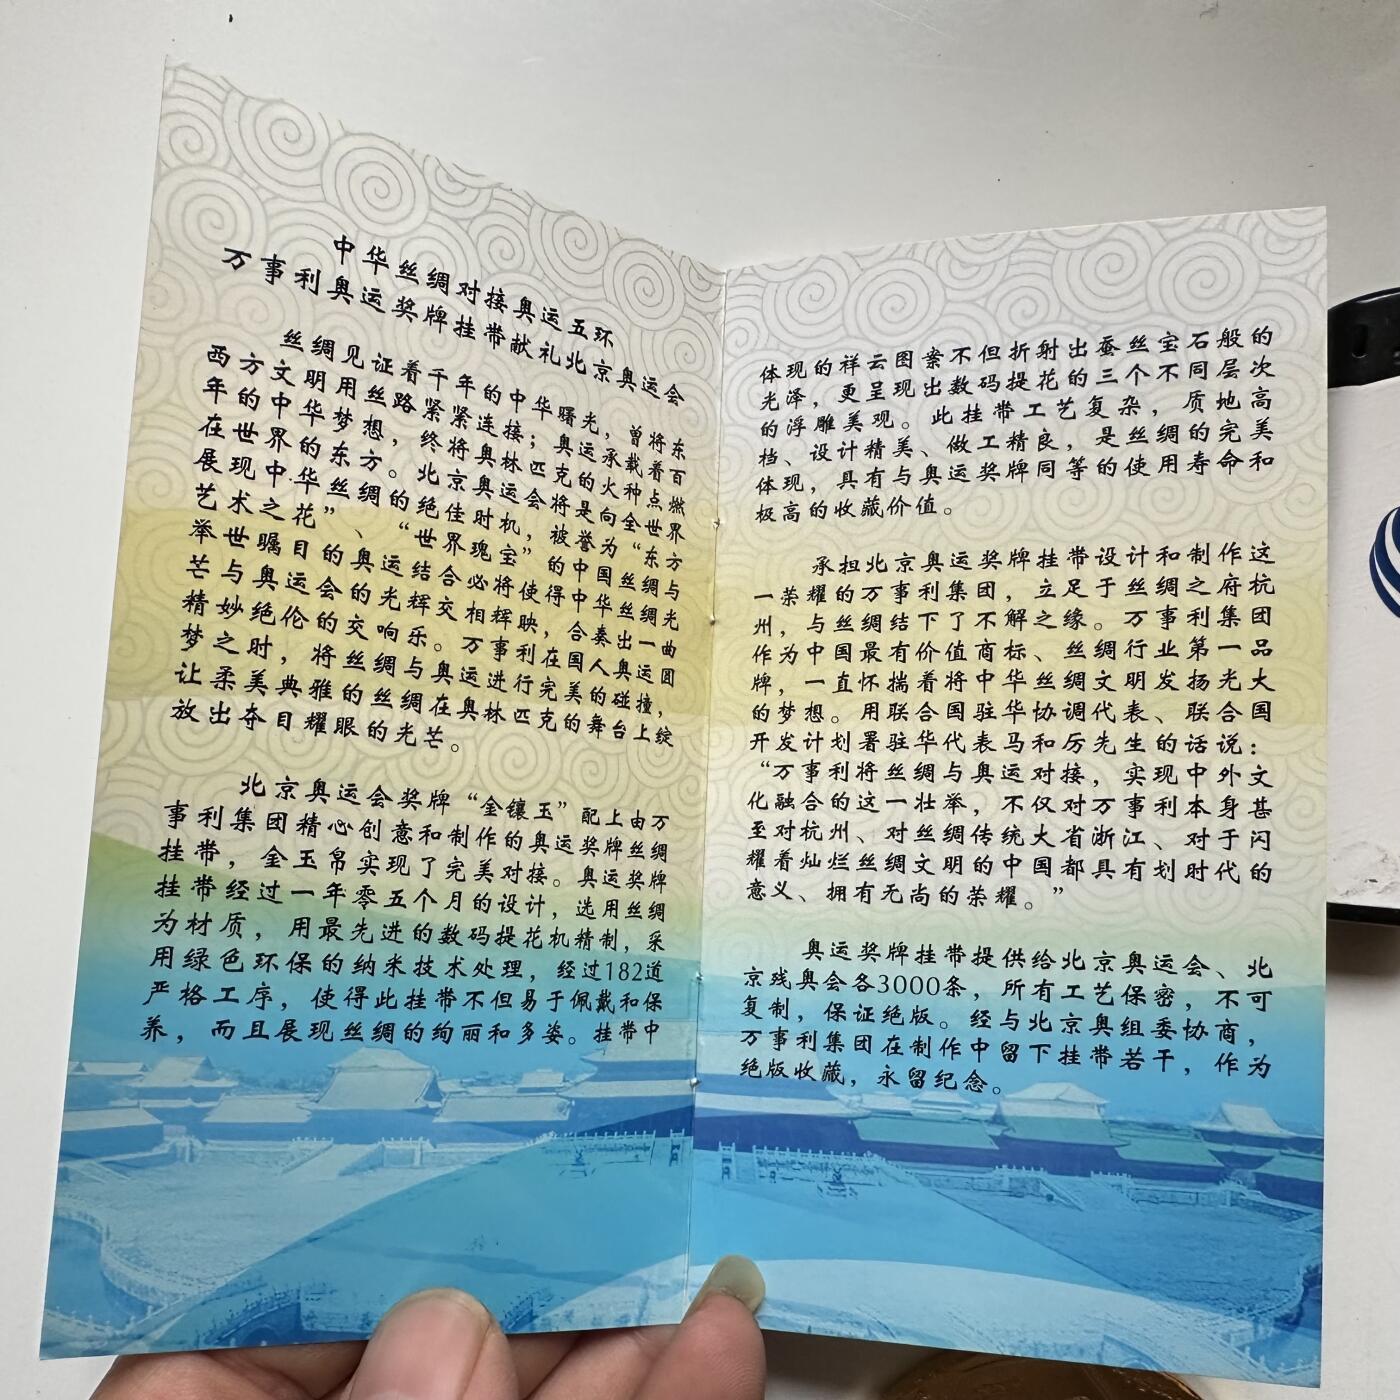 中华丝绸对接奥运五环
万事利奥运奖牌挂带献礼北京奥运会
丝绸见证着千年的中华曙光，曾将东
西方文明用丝路紧紧连接；奥运承载着百
年的中华梦想，终将奥林匹克的火种点燃
在世界的东方。北京奥运会将是向全世界
展现中华丝绸的绝佳时机，被誉为“东方
艺术之花”、“世界瑰宝”的中国丝绸与
举世瞩目的奥运结合必将使得中华丝绸光
芒与奥运会的光辉交相辉映，合奏出一曲
精妙绝伦的交响乐。万事利在国人奥运圆
梦之时，将丝绸与奥运进行完美的碰撞，
让柔美典雅的丝绸在奥林匹克的舞台上绽
放出夺目耀眼的光芒。
北京奥运会奖牌“金镶玉”配上由万
事利集团精心创意和制作的奥运奖牌丝绸
挂带，金玉帛实现了完美对接。奥运奖牌
挂带经过一年零五个月的设计，选用丝绸
为材质，用最先进的数码提花机精制，采
用绿色环保的纳米技术处理，经过182道
严格工序，使得此挂带不但易于佩戴和保
养，而且展现丝绸的绚丽和多姿。挂带中
体现的祥云图案不但折射出蚕丝宝石般的
光泽，更呈现出数码提花的三个不同层次
的浮雕美观。此挂带工艺复杂，质地高
档、设计精美、做工精良，是丝绸的完美
体现，具有与奥运奖牌同等的使用寿命和
极高的收藏价值。
承担北京奥运奖牌挂带设计和制作这
一荣耀的万事利集团，立足于丝绸之府杭
州，与丝绸结下了不解之缘。万事利集团
作为中国最有价值商标、丝绸行业第一品
牌，一直怀揣着将中华丝绸文明发扬光大
的梦想。用联合国驻华协调代表、联合国
开发计划署驻华代表马和厉先生的话说：
“万事利将丝绸与奥运对接，实现中外文
化融合的这一壮举，不仅对万事利本身甚
至对杭州、对丝绸传统大省浙江、对于闪
耀着灿烂丝绸文明的中国都具有划时代的
意义、拥有无尚的荣耀。”
奥运奖牌挂带提供给北京奥运会、北
京残奥会各3000条，所有工艺保密，不可
复制，保证绝版。经与北京奥组委协商，
万事利集团在制作中留下挂带若干，作为
绝版收藏，永留纪念。